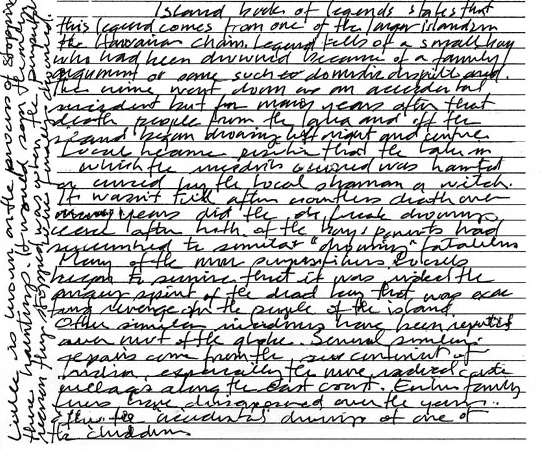 Island book of legends states that
this legend comes from one of the larger islands in
the Hawaiian chain. Legend tells of a small boy
who had been drowned because of a family
argument or some such or domestic dispute and.
The crime went down as an accidental
incident but for many years after that
death people from the area and off the
island began drowning left right and centre
Local became positive that the lake in
which the incidents occurred was haunted
or cursed by the local shaman or witch.
It wasn't till after countless death over
many years did the drowning
cease after both of the boy's parents had
succumbed to similar "drowning" fatalities
Many of the more superstitious locals
began to surmise that it was indeed the
angry spirit of the dead boy that was exac
ting revenge on the people of the island.
Other similar incidents have been reported
over most of the globe. Several similar
reports come from the sub continent of
India, especially the more radical caste
villages along the East coast. Entire family
lines have disappeared over the years
after the "accidental" drowning of one of
the children
Little is known on the process of stopping
these hauntings. It would seem the only
reason they stopped was when the